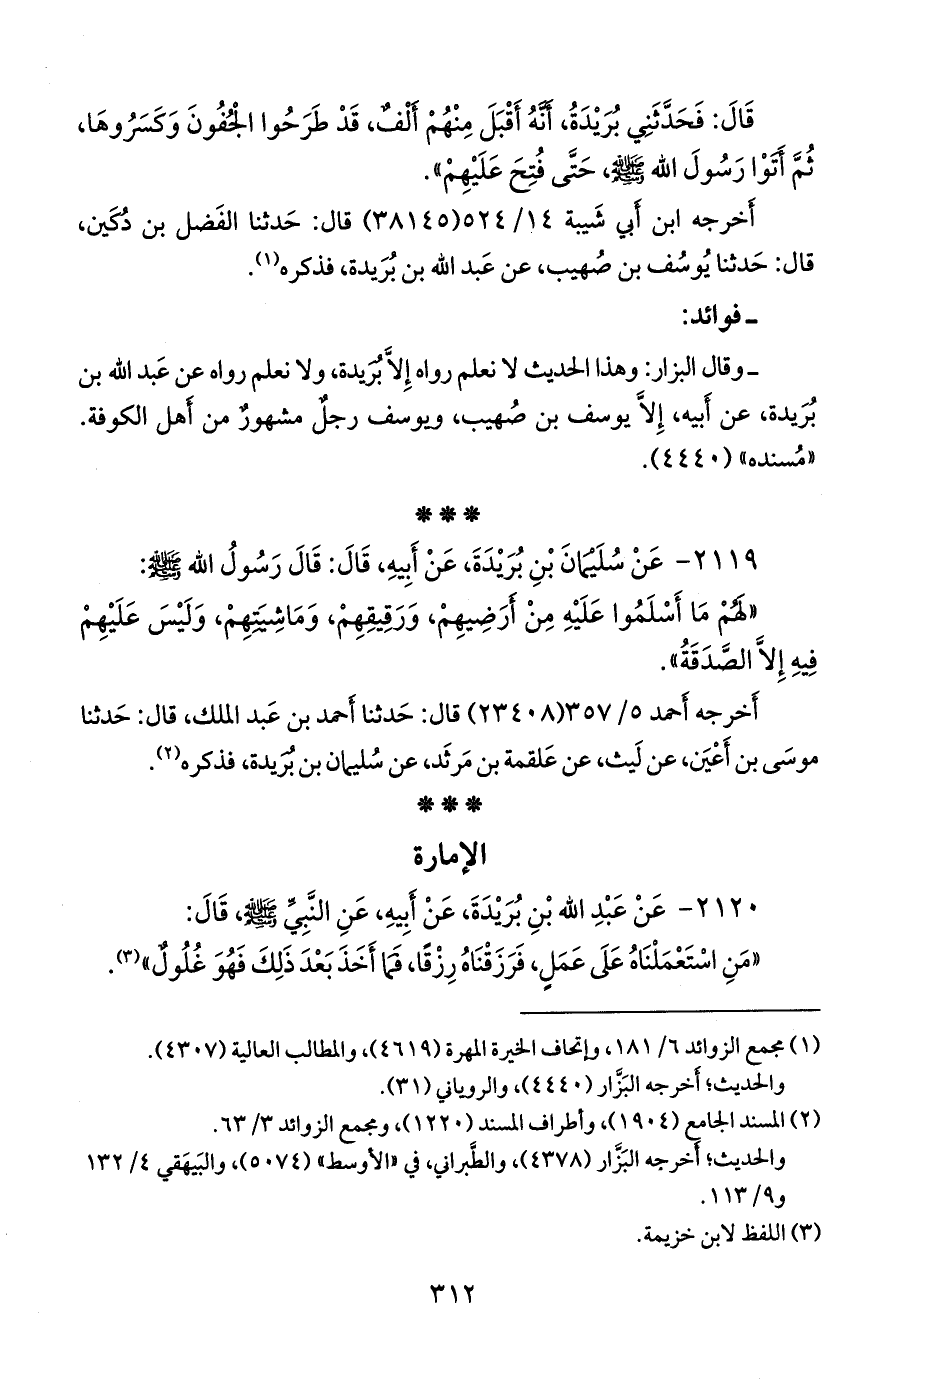 قَالَ: فَحَدَّثَنِي بُرَيْدَةُ، أَنَّهُ أَقْبَلَ مِنْهُمْ أَلْفٌ، قَدْ طَرَحُوا الْجُفُونَ وَكَسَرُوهَا،
ثُمَّ أَتَوْا رَسُولَ الله ﷺ، حَتَّى فُتِحَ عَلَيْهِمْ».
أَخرجه ابن أَبي شَيبة ١٤/ ٥٢٤(٣٨١٤٥) قال: حَدثنا الفَضل بن دُكَين،
قال: حَدثنا يُوسُف بن صُهيب، عن عَبد الله بن بُرَيدة، فذكره(١).
ـ فوائد:
ـ وقال البزار: وهذا الحديث لا نعلم رواه إِلاَّ بُرَيدة، ولا نعلم رواه عن عَبد الله بن
بُرَيدة، عن أَبيه، إِلاَّ يوسف بن صُهيب، ويوسف رجلٌ مشهورٌ من أَهل الكوفة.
«مُسنده» (٤٤٤٠).
* * *
٢١١٩- عَنْ سُلَيْمَانَ بْنِ بُرَيْدَةَ، عَنْ أَبِيهِ، قَالَ: قَالَ رَسُولُ الله ﷺ:
«لَهُمْ مَا أَسْلَمُوا عَلَيْهِ مِنْ أَرَضِيهِمْ، وَرَقِيقِهِمْ، وَمَاشِيَتِهِمْ، وَلَيْسَ عَلَيْهِمْ
فِيهِ إِلاَّ الصَّدَقَةُ».
أَخرجه أَحمد ٥/ ٣٥٧(٢٣٤٠٨) قال: حَدثنا أَحمد بن عَبد الملك، قال: حَدثنا
موسَى بن أَعْيَن، عن لَيث، عن عَلقمة بن مَرثَد، عن سُليمان بن بُرَيدة، فذكره(٢).
* * *
الإمارة
٢١٢٠- عَنْ عَبْدِ الله بْنِ بُرَيْدَةَ، عَنْ أَبِيهِ، عَنِ النَّبِيِّ ﷺ، قَالَ:
«مَنِ اسْتَعْمَلْنَاهُ عَلَى عَمَلٍ، فَرَزَقْنَاهُ رِزْقًا، فَمَا أَخَذَ بَعْدَ ذَلِكَ فَهُوَ غُلُولٌ»(٣).
(١) مجمع الزوائد ٦/ ١٨١، وإتحاف الخيرة المهرة (٤٦١٩)، والمطالب العالية (٤٣٠٧).
والحديث؛ أَخرجه البَزَّار (٤٤٤٠)، والروياني (٣١).
(٢) المسند الجامع (١٩٠٤)، وأطراف المسند (١٢٢٠)، ومجمع الزوائد ٣/ ٦٣.
والحديث؛ أَخرجه البَزَّار (٤٣٧٨)، والطَّبراني، في «الأوسط» (٥٠٧٤)، والبَيهَقي ٤/ ١٣٢
و٩/ ١١٣.
(٣) اللفظ لابن خزيمة.
٣١٢